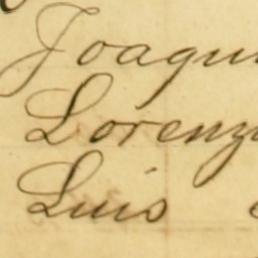 Joaqui
Lorenzo
Luis